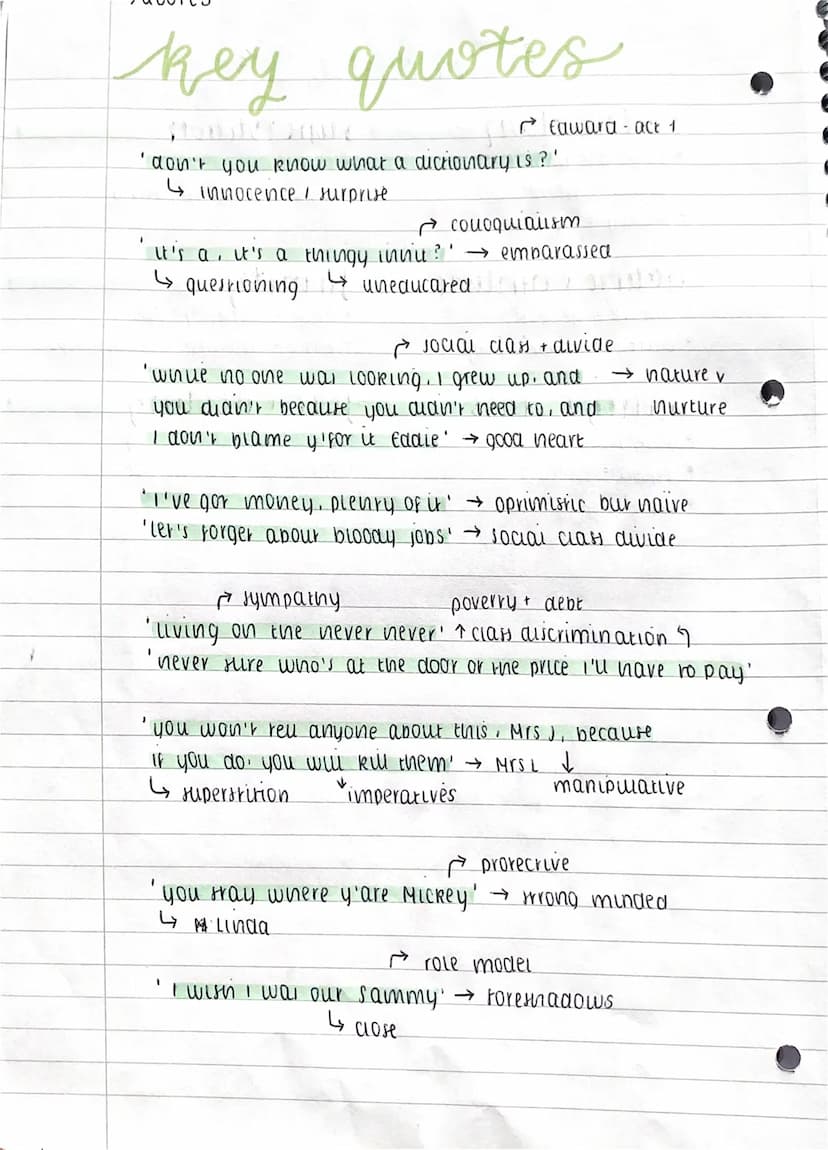 key quotes
↱ Edward - act 1
'don't you know what a dictionary is?'
↳ innocence / surprise
↱ colloquialism
'it's a, it's a thingy innit?' → embarassed
↳ questioning ↳ uneducated
↱ social class + divide
'while no one was looking, I grew up, and → nature v
you didn't because you didn't need to, and nurture
I don't blame y'for it Eddie' → good heart
'I've got money, plenty of it' → optimistic but naive
'let's forget about bloody jobs' → social class divide
↱ sympathy poverty + debt
'living on the never never' ↑ class discrimination ↰
'never sure who's at the door or the price I'll have to pay'
'you won't tell anyone about this, Mrs J, because
if you do, you will kill them' → Mrs L ↓
↳ superstition ↓ imperatives manipulative
↱ protective
'you stay where y'are Mickey' → strong minded
↳ Linda
↱ role model
'I wish I was our Sammy' → foreshadows
↳ close